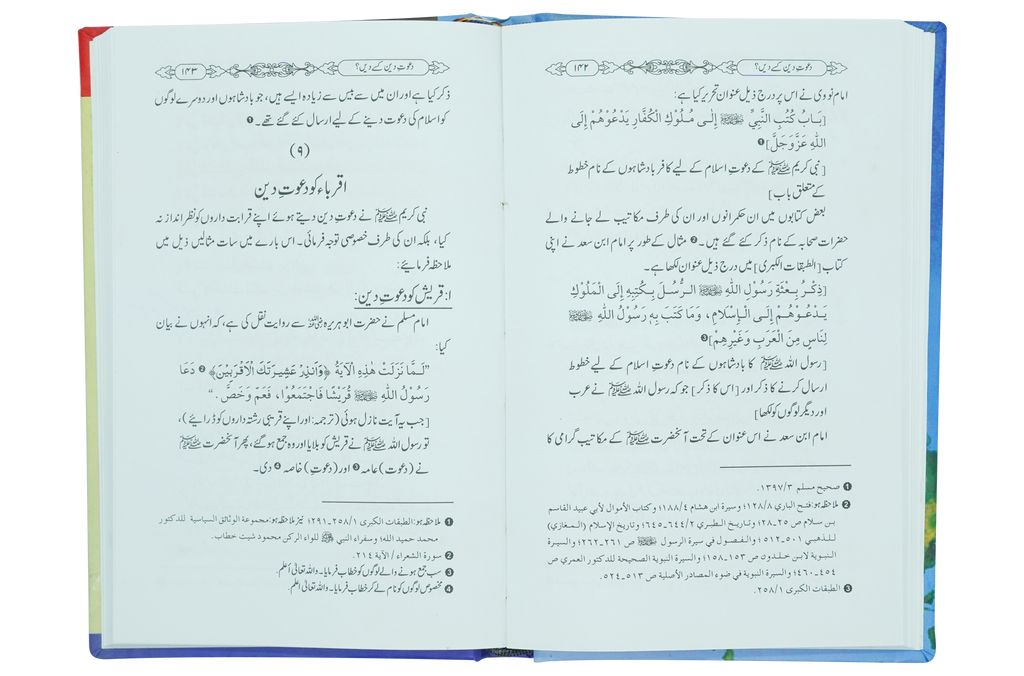 دعوتِ دین کسے دیں؟
۱۴۲
امام نووی نے اس پر درج ذیل عنوان تحریر کیا ہے:
[بَابُ كُتُبِ النَّبِيِّ ﷺ إِلٰى مُلُوْكِ الْكُفَّارِ يَدْعُوْهُمْ إِلَى
اللّٰهِ عَزَّوَجَلَّ]❶
[نبی کریم ﷺ کے دعوتِ اسلام کے لیے کافر بادشاہوں کے نام خطوط
کے متعلق باب]
بعض کتابوں میں ان حکمرانوں اور ان کی طرف مکاتیب لے جانے والے
حضرات صحابہ کے نام ذکر کئے گئے ہیں۔❷ مثال کے طور پر امام ابن سعد نے اپنی
کتاب [الطبقات الکبریٰ] میں درج ذیل عنوان لکھا ہے۔
[ذِكْرُ بِعْثَةِ رَسُوْلِ اللّٰهِ ﷺ الرُّسُلَ بِكُتُبِهِ إِلَى الْمَلُوْكِ
يَدْعُوْهُمْ إِلَى الْإِسْلَامِ، وَمَا كَتَبَ بِهِ رَسُوْلُ اللّٰهِ ﷺ
لِنَاسٍ مِنَ الْعَرَبِ وَغَيْرِهِمْ]❸
[رسول اللہ ﷺ کا بادشاہوں کے نام دعوتِ اسلام کے لیے خطوط
ارسال کرنے کا ذکر اور [اس کا ذکر] جو کہ رسول اللہ ﷺ نے عرب
اور دیگر لوگوں کو لکھا]
امام ابن سعد نے اس عنوان کے تحت آنحضرت ﷺ کے مکاتیب گرامی کا
❶ صحیح مسلم ۱۳۹۷/۳.
❷ ملاحظہ ہو: فتح الباري ۱۲۸/۸؛ وسيرة ابن هشام ۱۸۸/٤؛ وكتاب الأموال لأبي عبيد القاسم
بن سلام ص ۲۵-۲۸؛ وتاريخ الطبري ٦٤٤/۲-٦٤٥؛ وتاريخ الإسلام (المغازي)
للذهبي ۵۰۱-۵۱۲؛ والفصول في سيرة الرسول ﷺ ص ۲٦۱-۲٦۲؛ والسيرة
النبوية لابن خلدون ص ۱۵۳-۱۵۸؛ والسيرة النبوية الصحيحة للدكتور العمري ص
٤۵٤-٤٦۰؛ والسيرة النبوية في ضوء المصادر الأصلية ص ۵۱۳-۵۲٤.
❸ الطبقات الكبرى ۲۵۸/۱.
دعوتِ دین کسے دیں؟
۱۴۳
ذکر کیا ہے اور ان میں سے بیس سے زیادہ ایسے ہیں، جو بادشاہوں اور دوسرے لوگوں
کو اسلام کی دعوت دینے کے لیے ارسال کئے گئے تھے۔❶
(۹)
اقرباء کو دعوتِ دین
نبی کریم ﷺ نے دعوتِ دین دیتے ہوئے اپنے قرابت داروں کو نظر انداز نہ
کیا، بلکہ ان کی طرف خصوصی توجہ فرمائی۔ اس بارے میں سات مثالیں ذیل میں
ملاحظہ فرمائیے:
ا: قریش کو دعوتِ دین:
امام مسلم نے حضرت ابو ہریرہ رضی اللہ عنہ سے روایت نقل کی ہے، کہ انہوں نے بیان
کیا:
”لَمَّا نَزَلَتْ هٰذِهِ الْآيَةُ ﴿وَاَنْذِرْ عَشِيْرَتَكَ الْاَقْرَبِيْنَ﴾❷ دَعَا
رَسُوْلُ اللّٰهِ ﷺ قُرَيْشًا فَاجْتَمَعُوْا، فَعَمَّ وَخَصَّ.“
[جب یہ آیت نازل ہوئی (ترجمہ: اور اپنے قریبی رشتہ داروں کو ڈرائیے)،
تو رسول اللہ ﷺ نے قریش کو بلایا اور وہ جمع ہو گئے، پھر آنحضرت ﷺ
نے (دعوت) عامہ❸ اور (دعوتِ) خاصہ❹ دی۔
❶ ملاحظہ ہو: الطبقات الكبرى ۲۵۸/۱-۲۹۱؛ نیز ملاحظہ ہو: مجموعة الوثائق السياسية للدكتور
محمد حميد الله؛ وسفراء النبي ﷺ للواء الركن محمود شيت خطاب.
❷ سورة الشعراء / الآية ۲۱٤.
❸ سب جمع ہونے والے لوگوں کو خطاب فرمایا۔ واللہ تعالیٰ أعلم.
❹ مخصوص لوگوں کو نام لے کر خطاب فرمایا۔ واللہ تعالیٰ أعلم.